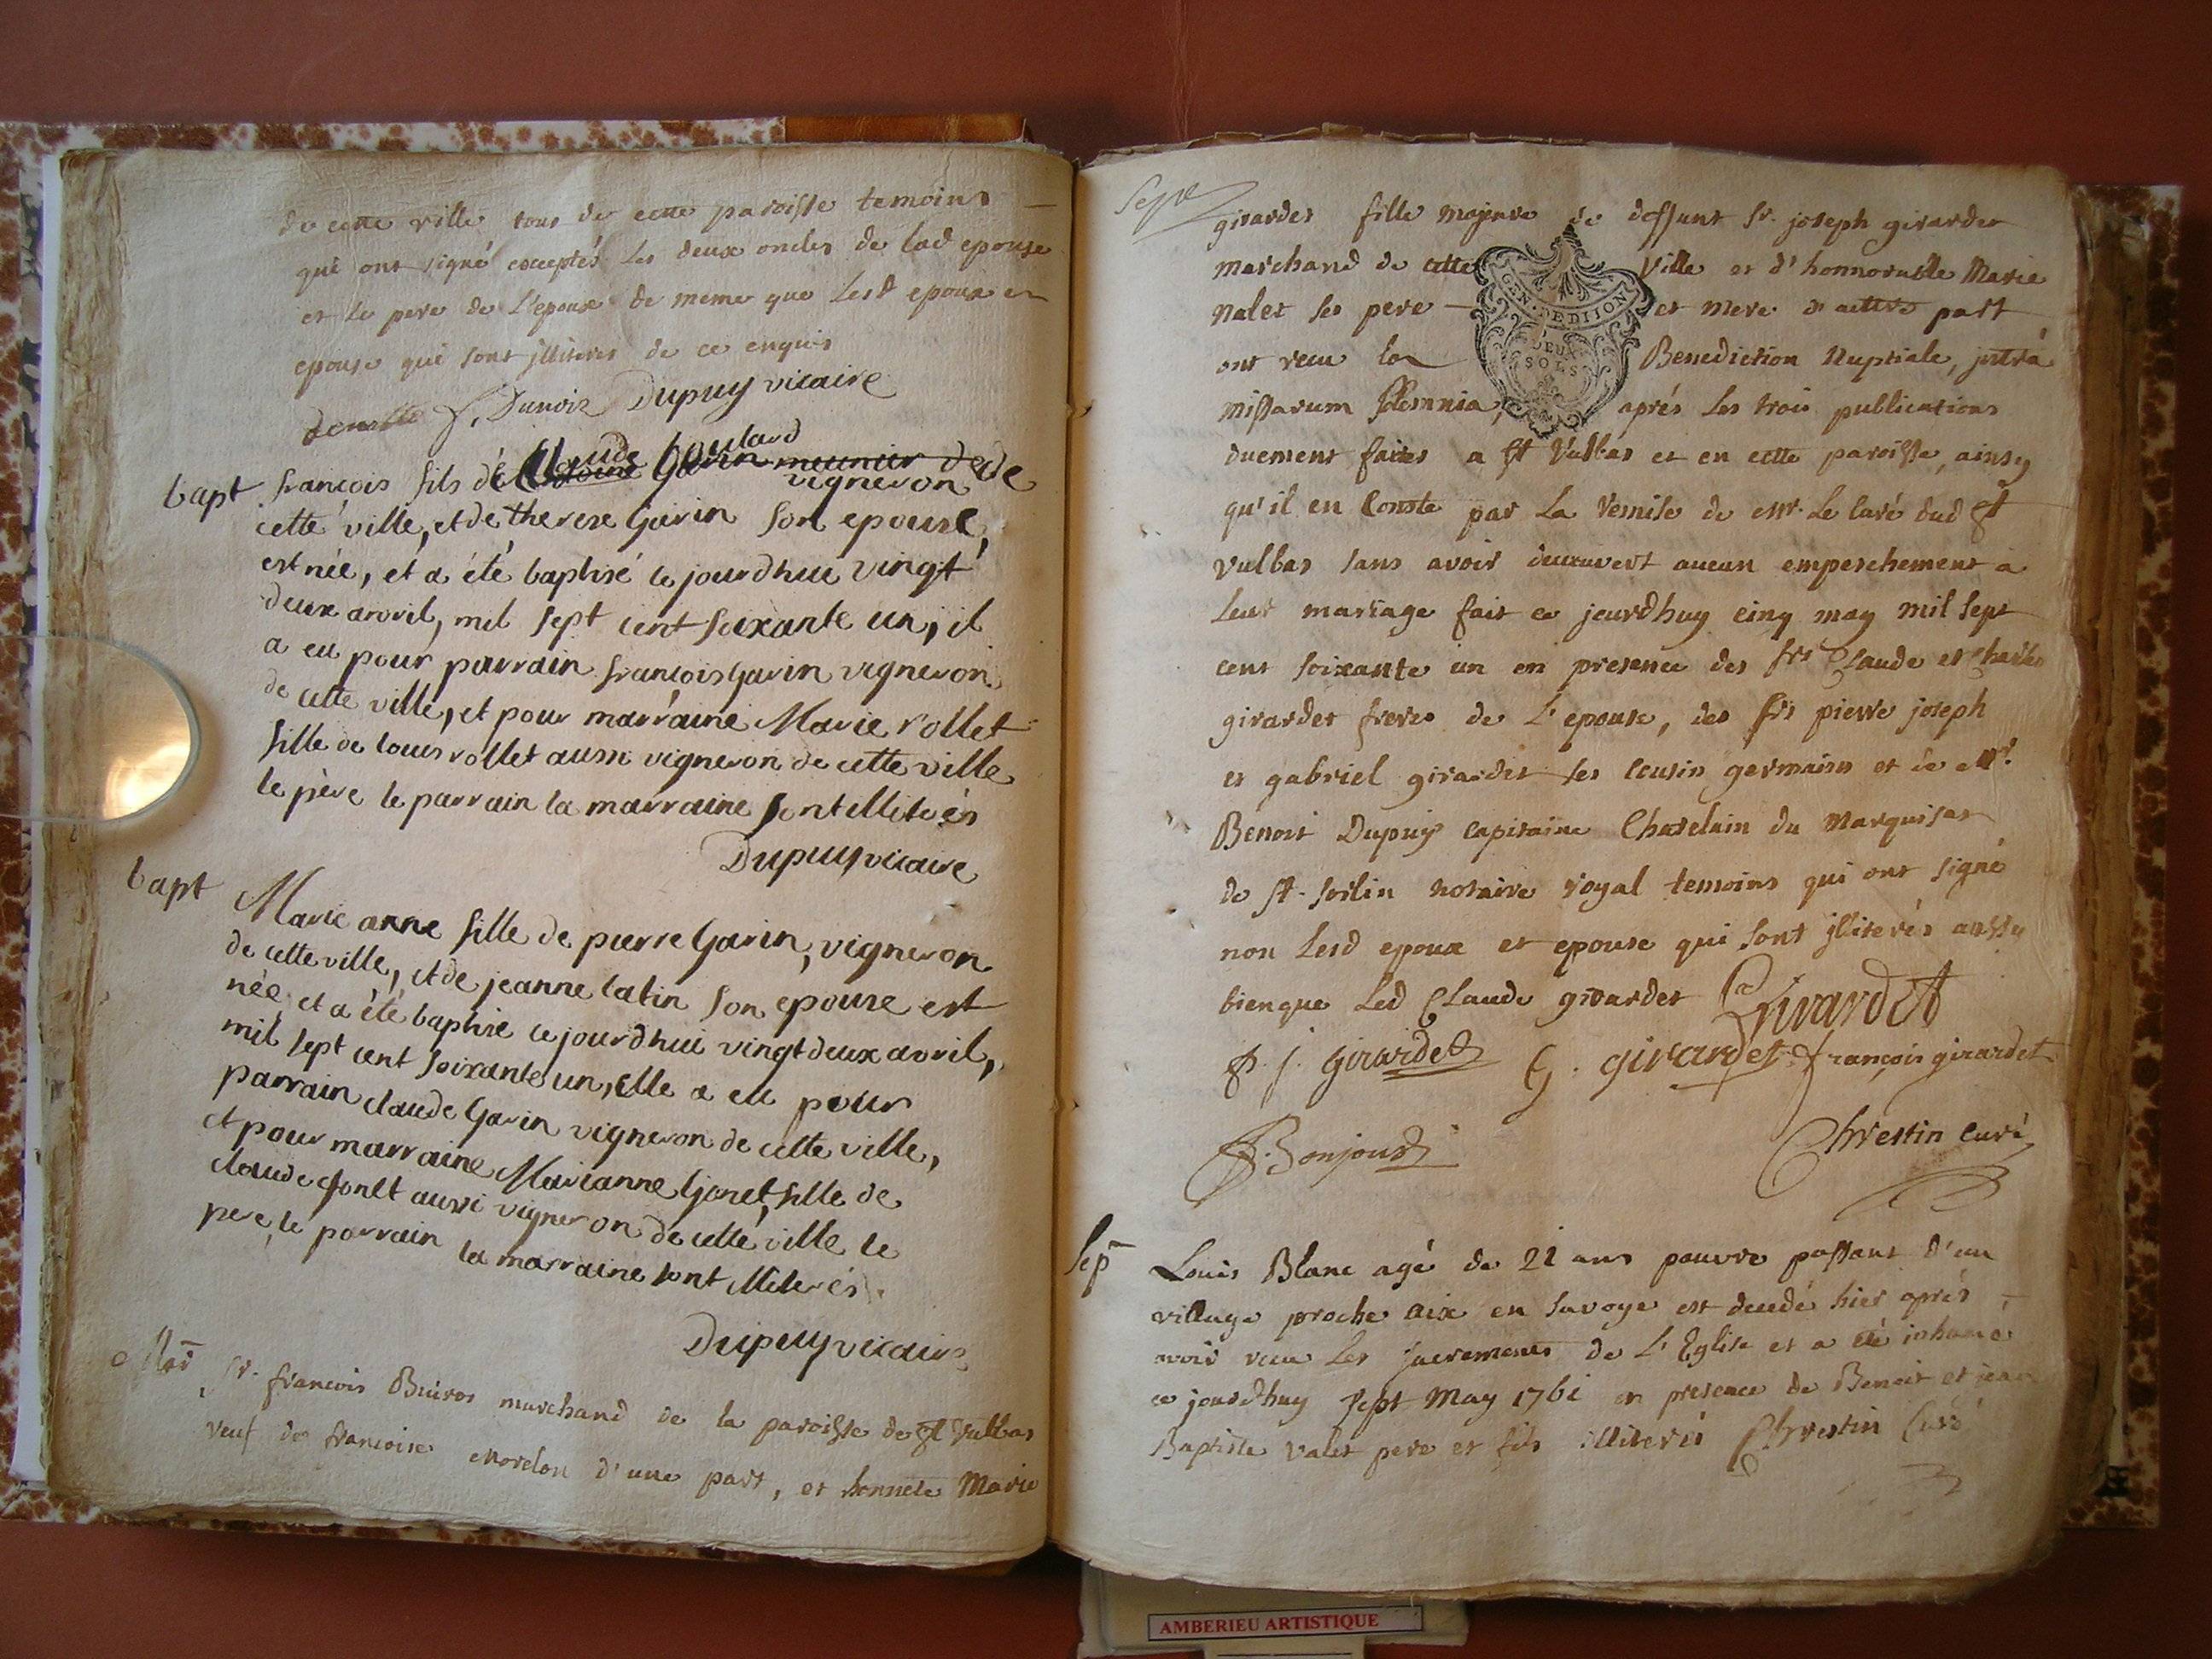 de cette ville tous de cette paroisse temoins
qui ont signé exceptés les deux oncles de lad epouse
et le pere de l'epoux de meme que lesd epoux et
epouse qui sont jlliteres de ce enquis
Dunoir Dupuy vicaire
bapt
francois fils de Claude Goulard vigneron de
cette ville, et de therese Garin son epouse,
est née, et a été baptisé le jourdhui vingt
deux avril, mil sept cent soixante un, il
a eu pour parrain francois Garin vigneron
de cette ville, et pour marraine Marie rollet
fille de louis rollet aussi vigneron de cette ville
le père le parrain la marraine sont illiterés
Dupuy vicaire
bapt
Marie anne fille de pierre Garin, vigneron
de cette ville, et de jeanne latin son epouse est
née et a été baptisé ce jourdhui vingt deux avril,
mil sept cent soixante un, elle a eu pour
parrain claude Garin vigneron de cette ville,
et pour marraine Marianne Gonet, fille de
claude Gonet aussi vigneron de cette ville le
pere, le parrain la marraine sont illiterés.
Dupuy vicaire
Mar
Sr. francois Buiros marchand de la paroisse de St Vulbas
veuf de francoise Morelon d'une part, et honnete Marie
Sepre
girardet fille majeure de deffunt Sr. joseph girardet
marchand de cette ville et d'honnorable Marie
Nalet ses pere et mere d'autre part
ont recu la Benediction Nuptiale, jntra
missarum solemnia, après les trois publications
duement faites a St Vulbas et en cette paroisse, ainsy
qu'il en Conste par la remise de Mr. le Curé dud St
Vulbas sans avoir decouvert aucun empeschement a
leur mariage fait ce jourdhuy cinq may mil sept
cent soixante un en presence des srs Claude et Charles
girardet freres de l'epouse, des srs pierre joseph
et gabriel girardet ses cousin germains et de Mr.
Benoit Dupuy Capitaine Chatelain du Marquisat
de St. Sorlin notaire royal temoins qui ont signé
non lesd epoux et epouse qui sont jlliterés aussy
bienque led Claude girardet Girardet
p. j. girardet G. girardet françois girardet
Bonjour
Chrestin curé
GEN. DE DIJON
DEUX
SOLS
Sep
Louis Blanc agé de 21 ans pauvre passant d'un
village proche aix en Savoye est decedé hier aprés
avoir recu les sacrements de l'Eglise et a eté inhumé
ce jourdhuy sept May 1761 en presence de Benoit et jean
Baptiste Valet pere et fils illiterés Chrestin Curé
AMBERIEU ARTISTIQUE